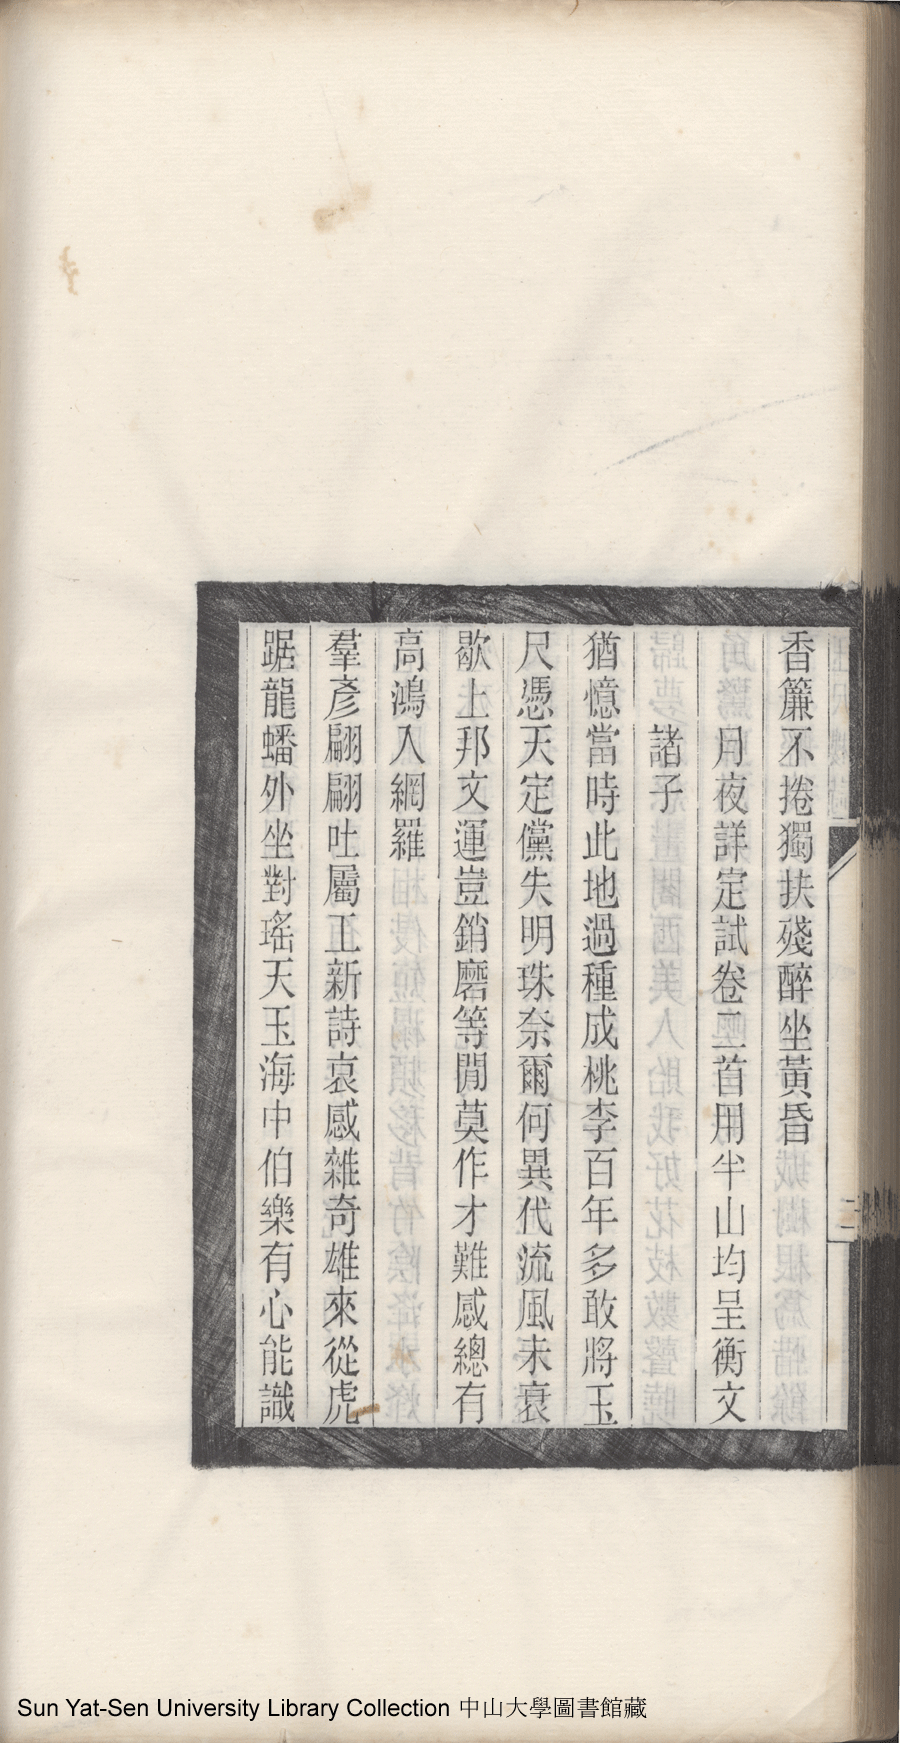 香簾不捲獨扶殘醉坐黃昏
月夜詳定試卷二首用半山均呈衡文
諸子
猶憶當時此地過種成桃李百年多敢將玉
尺憑天定儻失明珠奈爾何異代流風未衰
歇上邦文運豈銷磨等閒莫作才難感總有
高鴻入網羅
羣彥翩翩吐屬工新詩哀感雜奇雄來從虎
踞龍蟠外坐對瑤天玉海中伯樂有心能識
二
Sun Yat-Sen University Library Collection 中山大學圖書館藏